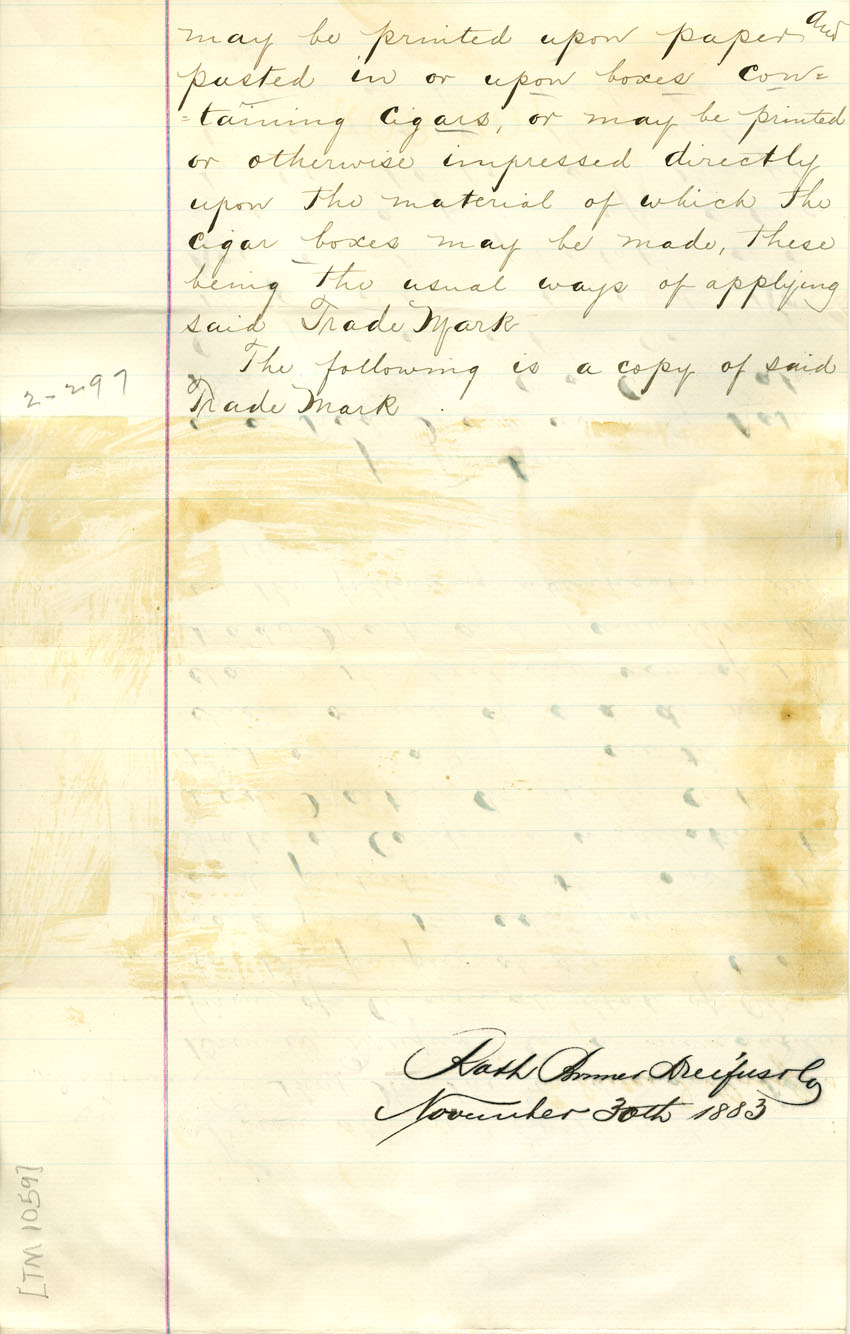 may be printed upon paper and
pasted in or upon boxes con=
=taining cigars, or may be printed
or otherwise impressed directly
upon the material of which the
cigar boxes may be made, these
being the usual ways of applying
said Trade Mark
The following is a copy of said
Trade Mark.
2-297
November 30th 1883
[TM 1059]